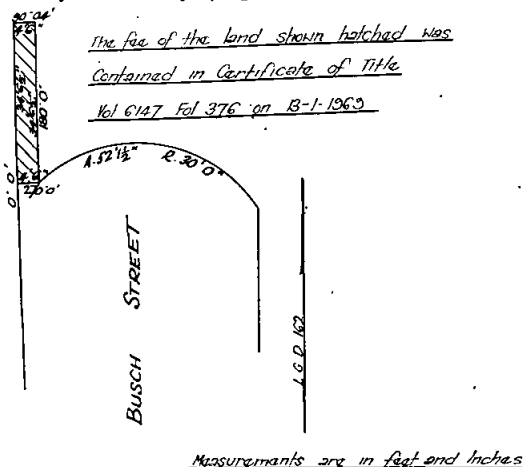 90°04'
4'6"
The fee of the land shown hatched was
Contained in Certificate of Title
Vol 6147 Fol 376 on 13-1-1969
180°0'
4'6"
270°0'
0°0'
A.52'1½"
R.30'0"
BUSCH STREET
L.G.D. 162
Measurements are in feet and Inches